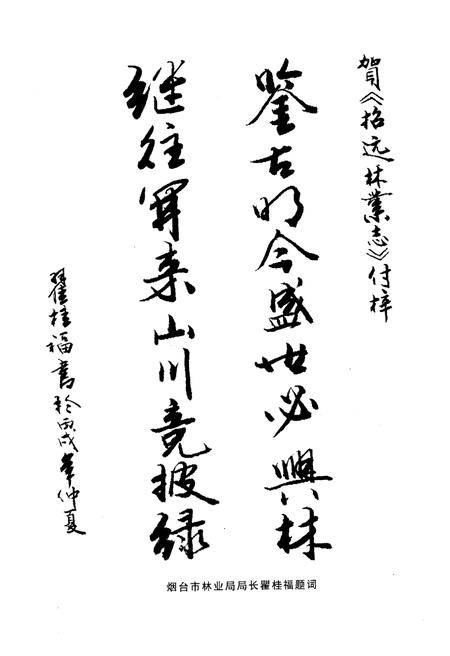 賀《招远林業志》付梓
鉴古明今盛世必興林
继往開来山川竞披绿
瞿桂福書於丙戌年仲夏
烟台市林业局局长瞿桂福题词